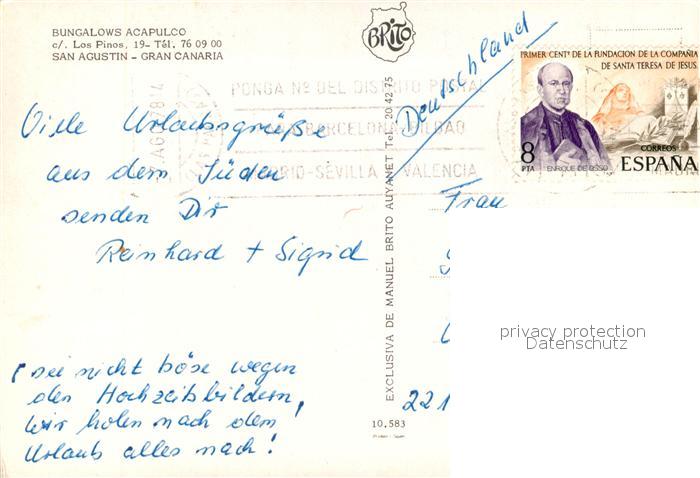 BUNGALOWS ACAPULCO
c/. Los Pinos, 19 - Tél. 76 09 00
SAN AGUSTIN - GRAN CANARIA
BRITO
Deutschland
PRIMER CENTº DE LA FUNDACION DE LA COMPAÑIA
DE SANTA TERESA DE JESUS
8
PTA
ENRIQUE DE OSSO
CORREOS
ESPAÑA
PONGA Nº DEL DISTRITO POSTAL
BARCELONA-BILBAO
MADRID-SEVILLA VALENCIA
Viele Urlaubsgrüße
aus dem Süden
senden Dir
Reinhard + Sigrid
sei nicht böse wegen
den Hochzeitsbildern,
wir holen nach dem
Urlaub alles nach!
EXCLUSIVA DE MANUEL BRITO AUYANET Tel. 20 42 75
10.583
Frau
221
privacy protection
Datenschutz